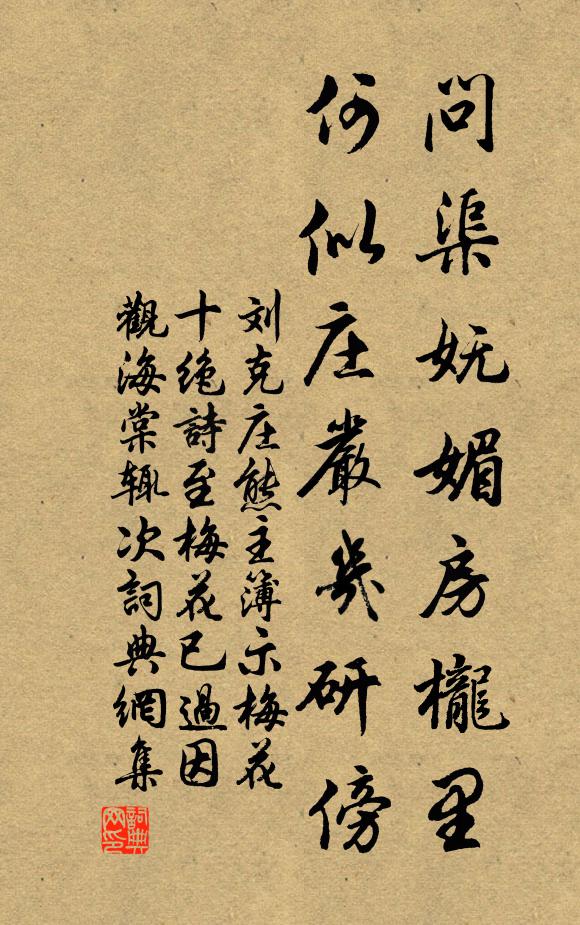 問渠妩媚房櫳里
何似庄嚴幾研傍
刘克庄熊主簿示梅花
十絶詩至梅花已過因
觀海棠辄次詞典網集
詞典网印